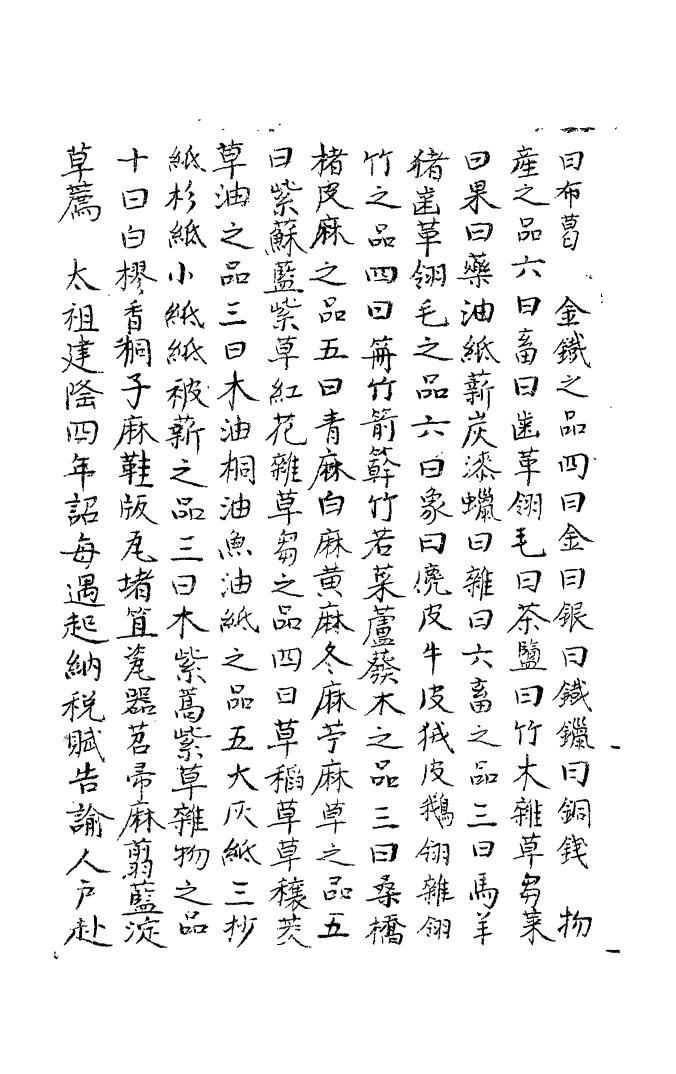 曰布葛　金鐵之品四曰金曰銀曰鐵鑞曰銅錢　物
產之品六曰畜曰齒革翎毛曰茶鹽曰竹木雜草芻菜
曰果曰藥油紙薪炭漆蠟曰雜曰六畜之品三曰馬羊
豬齒革翎毛之品六曰象曰麂皮牛皮狨皮鵝翎雜翎
竹之品四曰筲竹箭簳竹若菜蘆蕟木之品三曰桑橋
楮皮麻之品五曰青麻白麻黃麻冬麻苧麻草之品五
曰紫蘇藍紫草紅花雜草芻之品四曰草稻草草穰茭
草油之品三曰木油桐油魚油紙之品五大灰紙三抄
紙杉紙小紙紙被薪之品三曰木紫蒿紫草雜物之品
十曰白樛香桐子麻鞋版瓦堵笪瓷器苕帚麻翦藍淀
草薦　太祖建隆四年詔每遇起納稅賦告諭人戶赴